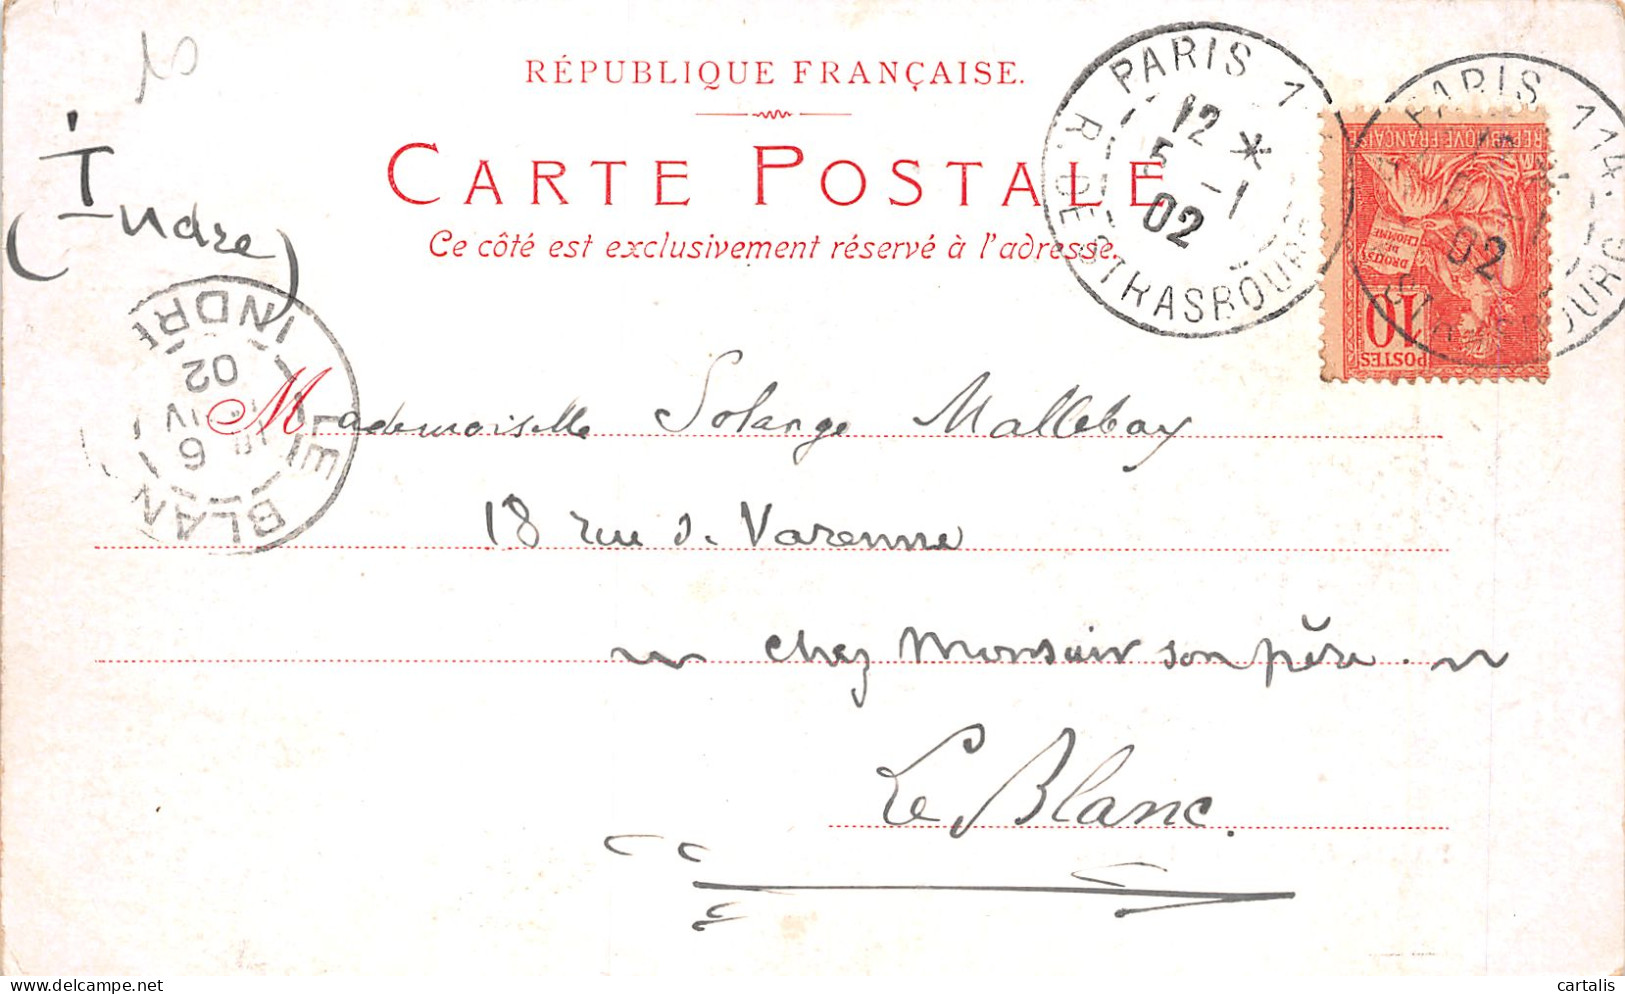 RÉPUBLIQUE FRANÇAISE.
CARTE POSTALE
Ce côté est exclusivement réservé à l'adresse.
(Indre)
PARIS 1
12 *
5 - 1
02
R. DE STRASBOURG
PARIS 114.
02
STRASBOURG
RÉPUBLIQUE FRANÇAISE
DROITS DE L'HOMME
10
POSTES
LE BLANC
INDRE
6
02
Mademoiselle Solange Mallebay
18 rue d. Varenne
chez Monsieur son père.
Le Blanc.
delcampe.net
cartalis